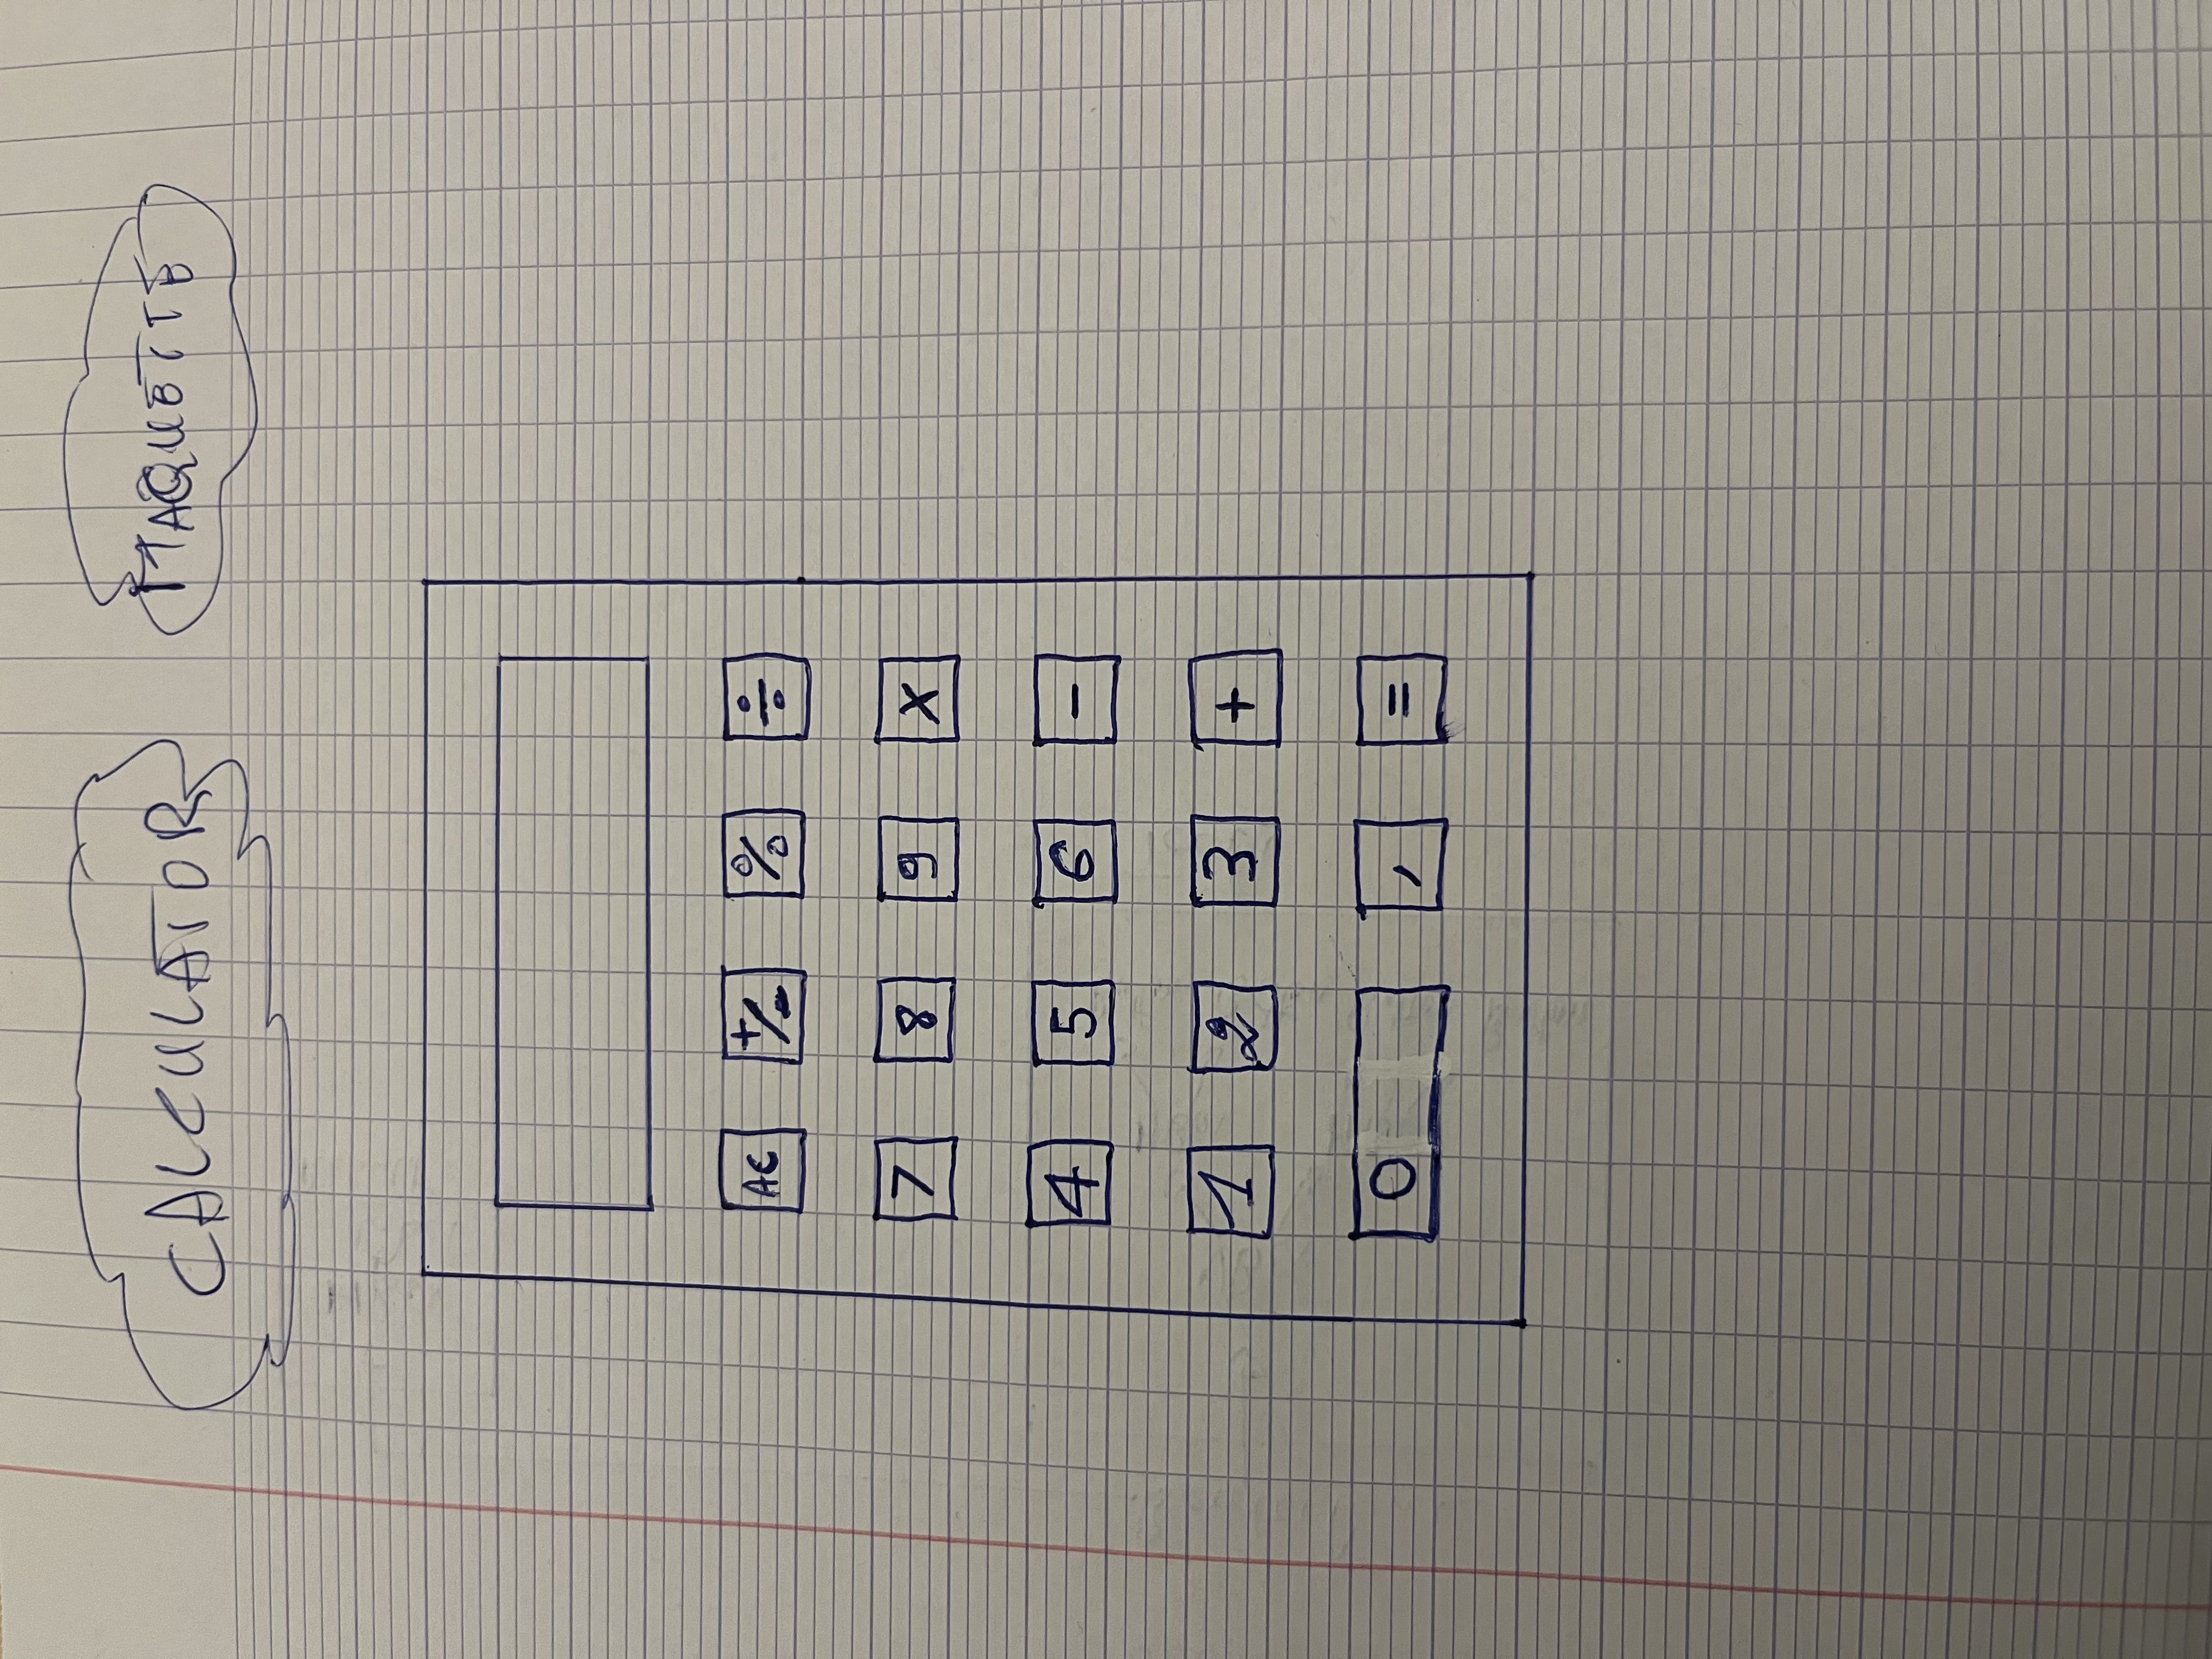 CALCULATOR MAQUETTE
AC +/- % ÷
7 8 9 x
4 5 6 -
1 2 3 +
0 , =